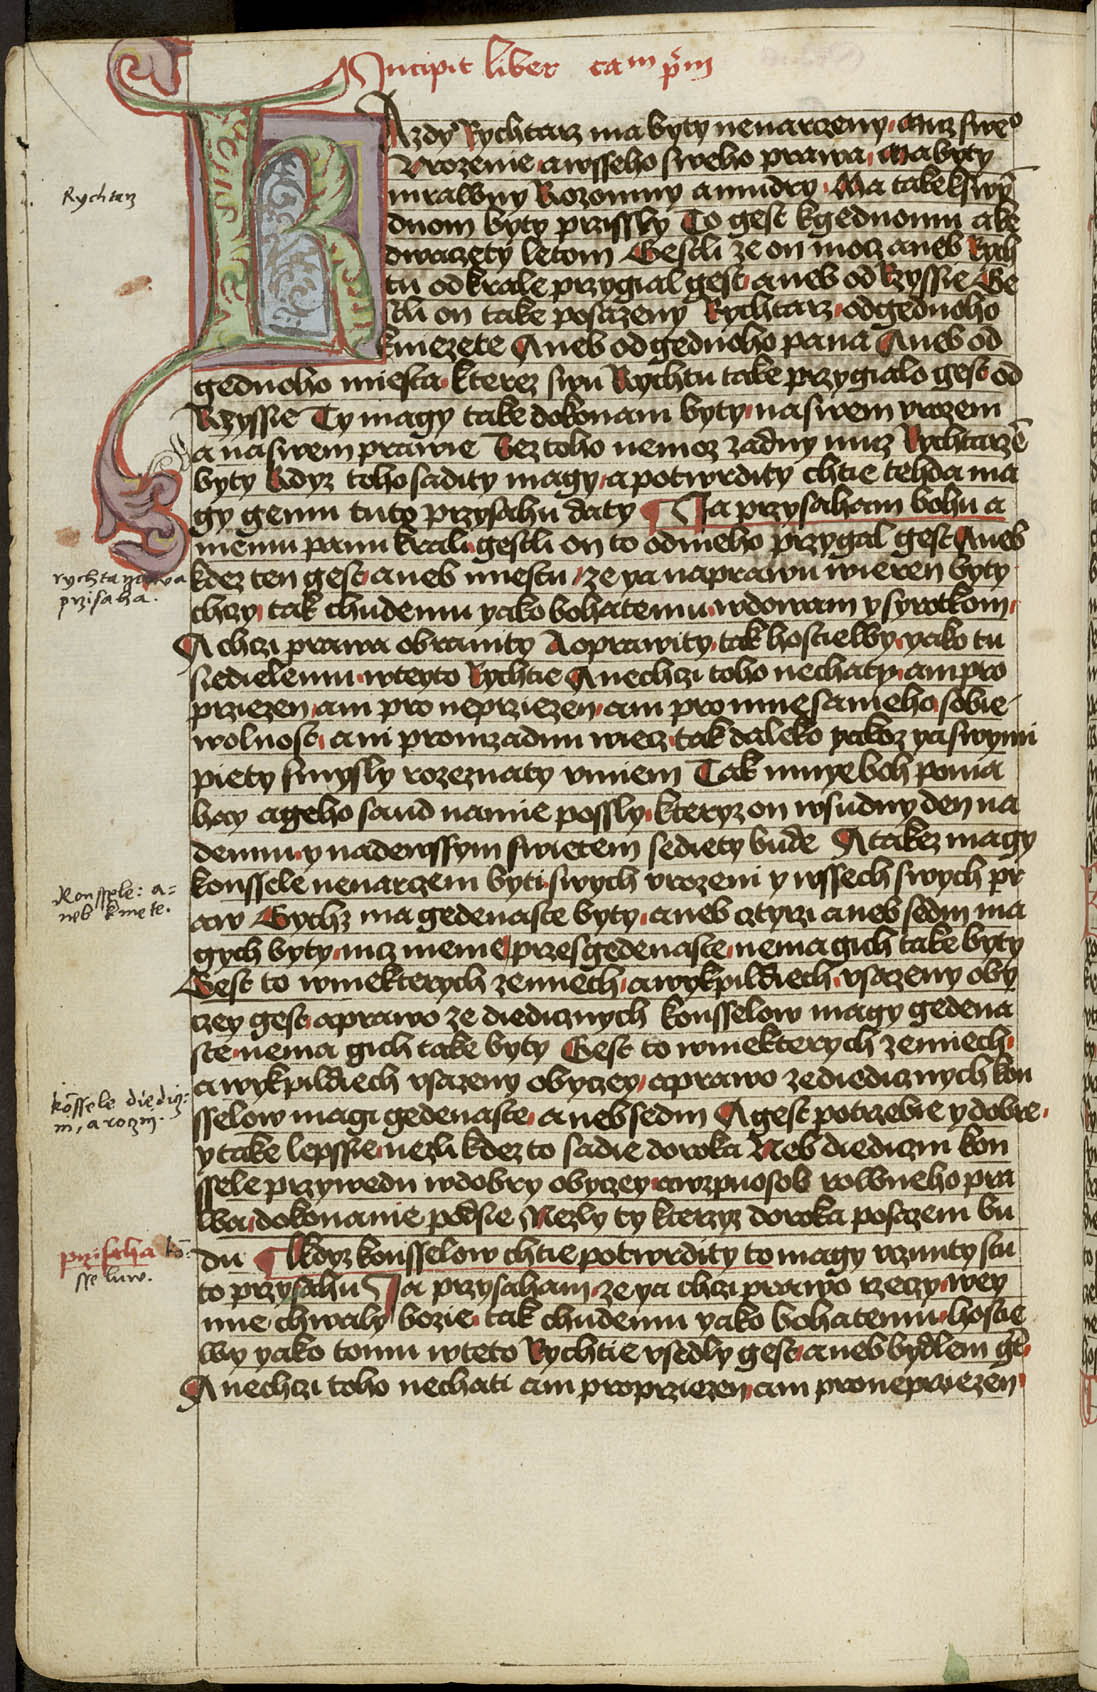 Incipit liber ca m pm
KAzdy Rychtarz ma byty nenarczeny. Anız sweo
Vrozenie awsseho sweho prawa, Ma byty
mrawny Rozomny a mudry. Ma take k swy
dnom byty przissly To gest k gednomu a ke
dwaczety letom Gestli ze on mocz aneb Rych
tu od krale przygial gest, aneb od Rzyssie Ge
stli on take posazeny Rychtarz, od gednoho
kniezete Aneb od gednoho pana Aneb od
gednoho miesta, kterez swu Rychtu take przygialo gest od
Rzyssie Ty magy take dokonani byty, na swem vrozeni
a na swem prawie Bez toho nemoz zadny nicz Rychtarze
byty Kdyz toho saditi magy, a potwrdity chtie tehda ma
gy gemu tuto przysahu daty Ja przysaham bohu a
memu panu krali, gestli on to od nieho przygal gest Aneb
kdez ten gest, aneb miestu, ze ya na prawu wieren byty
chczy, tak chudemu yako bohatemu, wdowam y syrotkom,
A chczi prawa obraniti A oprawity, tak hostielwy, yako tu
siedielemu, w teyto Rychtie A nechczi toho nechaty, ani pro
prziezen, ani pro neprziezen, ani pro mne sameho, sobie
wolnost, ani pro nizadnu wiecz, tak daleko yakoz ya swymi
piety smysly rozeznaty vmiem Tak mnye boh poma
hay a geho saud na mie possly, kteryz on w sudny den na
demnu, y nade wssym swietem sediety bude A takez magy
konssele nenarczeni byti, swych vrozeni y wssech swych pr
aw Gychz ma gedenaste byty, aneb cztyrzi aneb sedm ma
gych byty, nicz menie przes gedenaste, nema gich take byty
Gest to w niekterych zemiech, a wykpildiech, vsazeny oby
czey gest, a prawo ze diedicznych konsselow magy gedena
ste, nema gich take byty Gest to w niekterych zemiech,
a wykpildiech vsazeny obyczey, a prawo ze diedicznych kon
sselow magi gedenaste, aneb sedm A gest potrzebie y dobre,
y take lepssie, nezli kdez to sadie do roka Neb dieditzni kon
ssele przywedu w dobry obyczey, a w zpuosob rowneho pra
wa, dokonanie podsie Nezly ty kterzyz do roka posazeni bu
du Kdyz konsselow chtie potwrdity to magy vczinity stu
to przysahu Ja przysaham, ze ya chczi prawo rzeczy, wey
mie, chwaly bozie, tak chudemu yako bohatemu, hostie
wy yako tomu w teto Rychtie vsedly gest, aneb bydlem gt,
A nechczi toho nechati ani pro prziezen, ani pro neprziezen,
Rychtarz
rychtarzowa
przisaha.
Konssele: a=
neb kmete.
kossele diedig=
ni, a rozni.
przisaha ko=
sseluw.